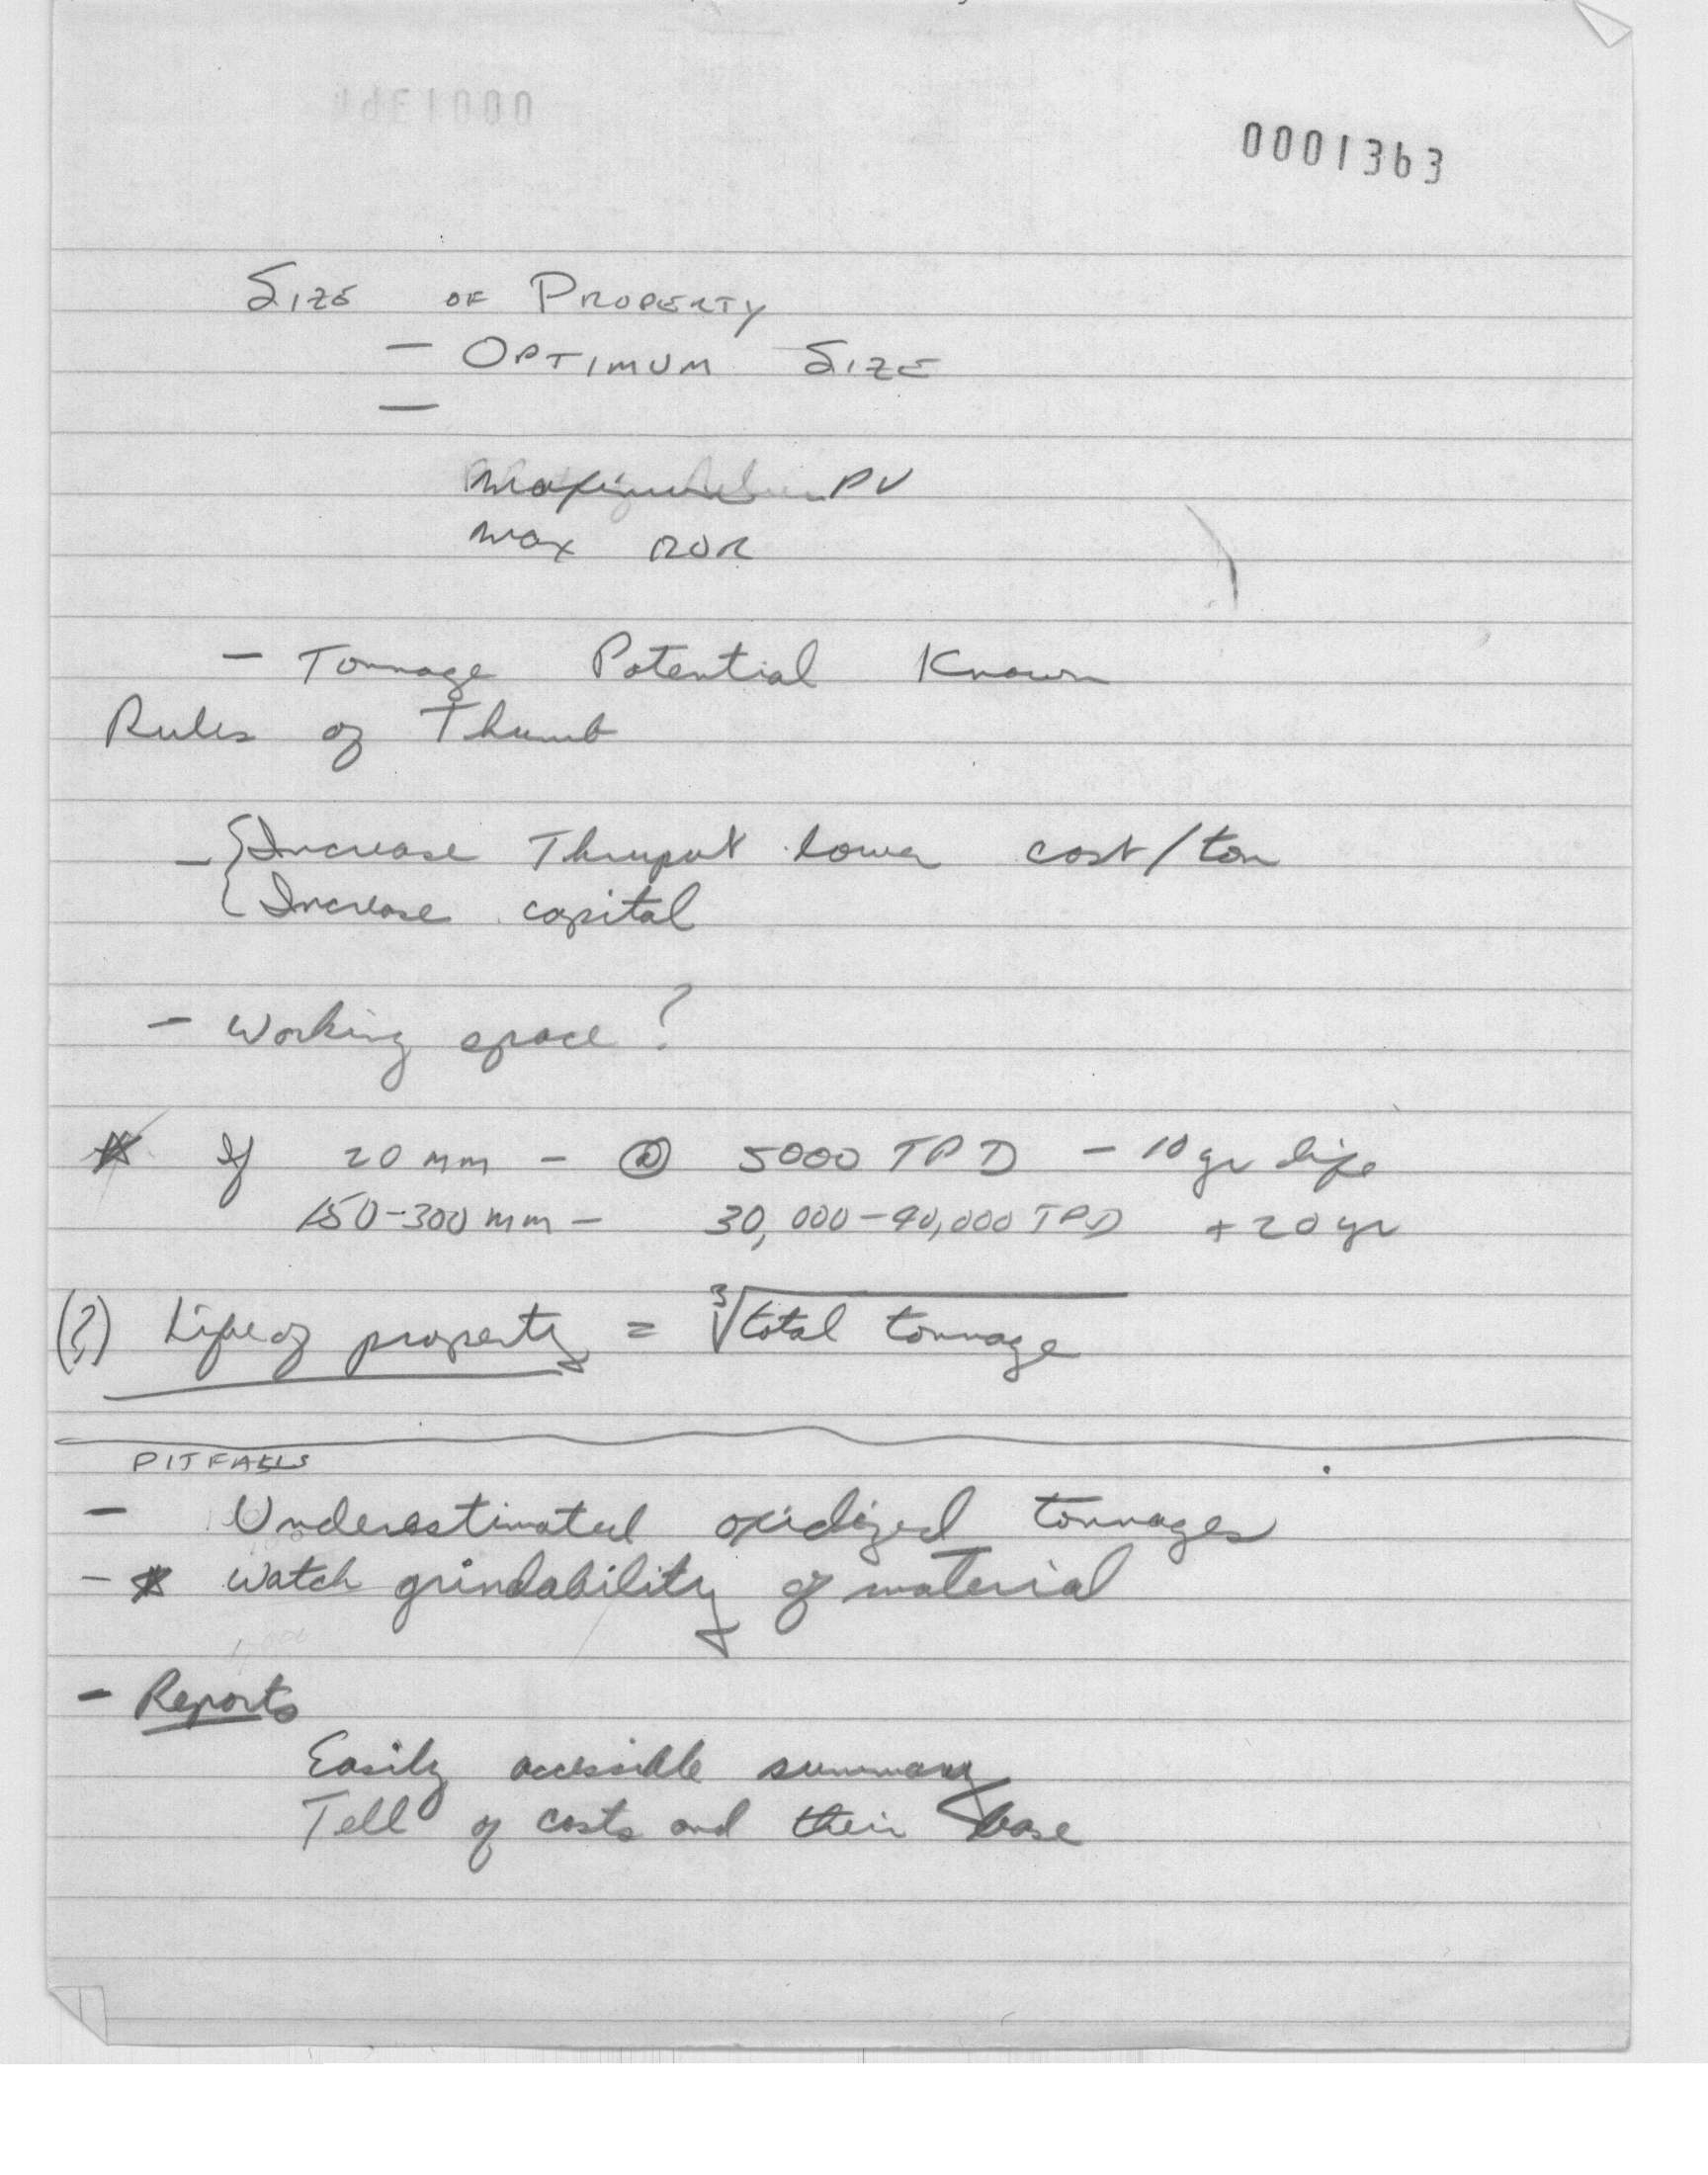 0001363
SIZE OF PROPERTY
— OPTIMUM SIZE
—
PV
Max ROR
— Tonnage Potential Known
Rules of Thumb
— { Increase Thruput lower cost/ton
{ Increase capital
— Working space?
* If 20 mm — @ 5000 TPD — 10 yr life
150-300 mm — 30,000-40,000 TPD + 20 yr
(?) Life of property = ∛total tonnage
PITFALLS
— Underestimated oxidized tonnages
— * Watch grindability of material
— Reports
Easily accessible summary
Tell of costs and their base